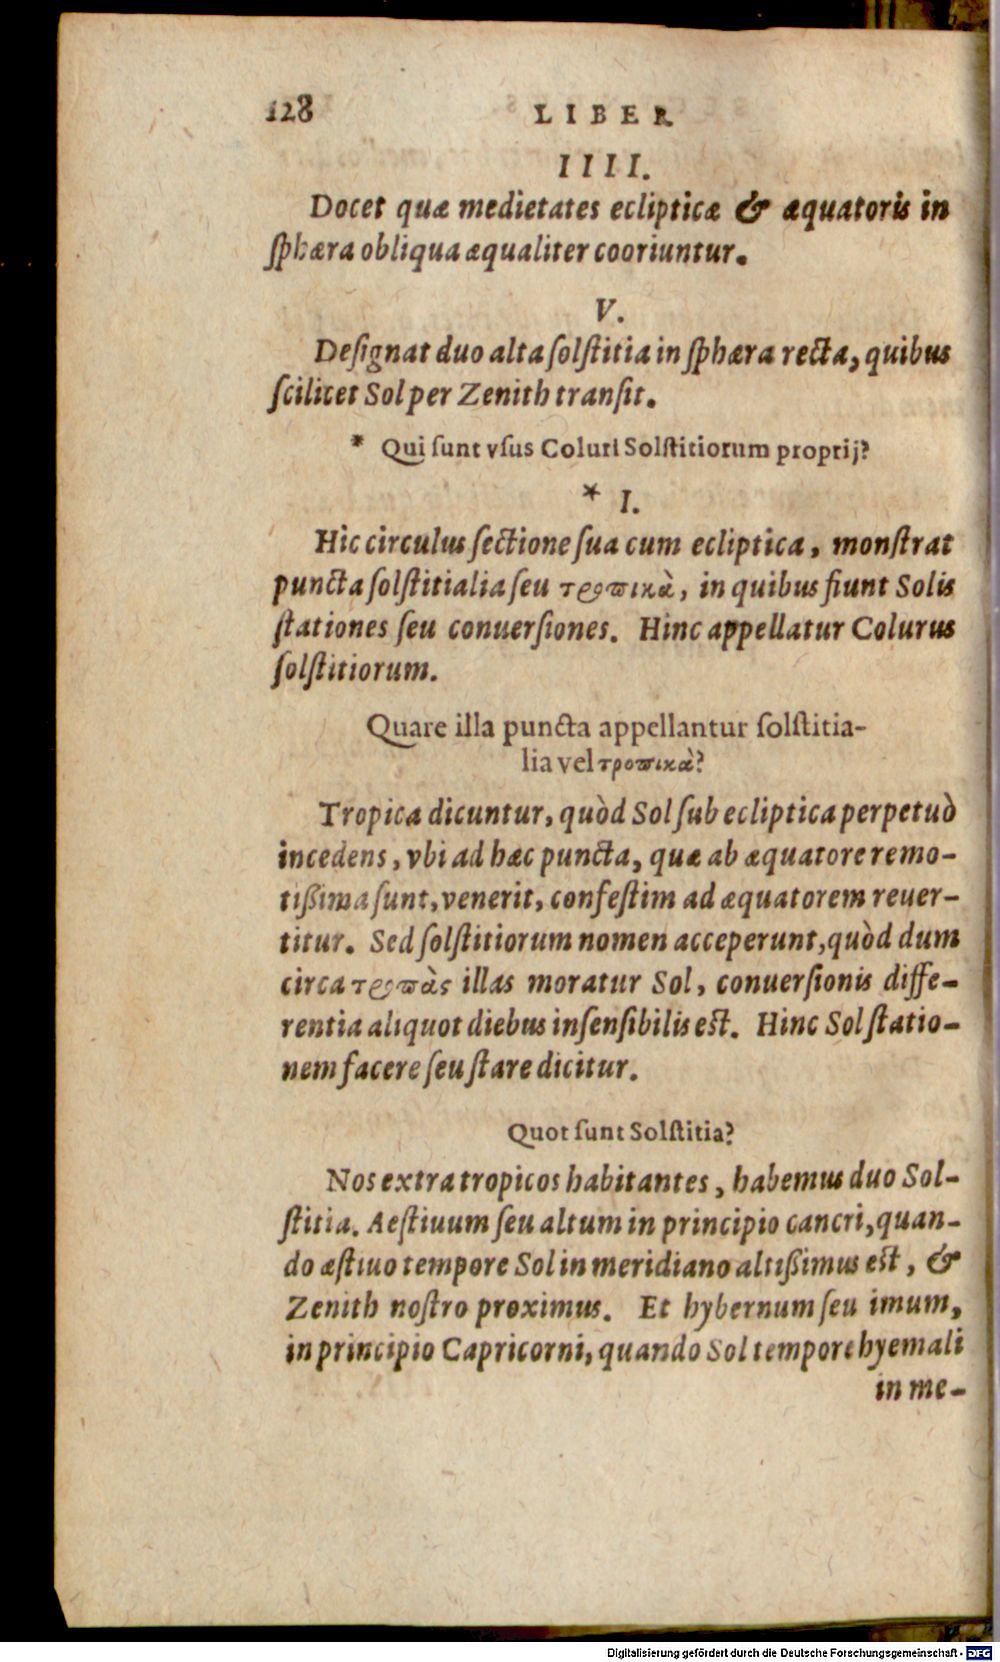 128 LIBER
IIII.
Docet quæ medietates eclipticæ & æquatoris in
ſphæra obliqua æqualiter cooriuntur.
V.
Deſignat duo alta ſolſtitia in ſphæra recta, quibus
ſcilicet Sol per Zenith tranſit.
* Qui ſunt vſus Coluri Solſtitiorum proprij?
* I.
Hic circulus ſectione ſua cum ecliptica, monſtrat
puncta ſolſtitialia ſeu τροπικὰ, in quibus fiunt Solis
ſtationes ſeu conuerſiones. Hinc appellatur Colurus
ſolſtitiorum.
Quare illa puncta appellantur ſolſtitia-
lia vel τροπικὰ?
Tropica dicuntur, quòd Sol ſub ecliptica perpetuò
incedens, vbi ad hæc puncta, quæ ab æquatore remo-
tißima ſunt, venerit, confeſtim ad æquatorem reuer-
titur. Sed ſolſtitiorum nomen acceperunt, quòd dum
circa τροπὰς illas moratur Sol, conuerſionis diffe-
rentia aliquot diebus inſenſibilis eſt. Hinc Sol ſtatio-
nem facere ſeu ſtare dicitur.
Quot ſunt Solſtitia?
Nos extra tropicos habitantes, habemus duo Sol-
ſtitia. Aeſtiuum ſeu altum in principio cancri, quan-
do æſtiuo tempore Sol in meridiano altißimus eſt, &
Zenith noſtro proximus. Et hybernum ſeu imum,
in principio Capricorni, quando Sol tempore hyemali
in me-
Digitalisierung gefördert durch die Deutsche Forschungsgemeinschaft - DFG